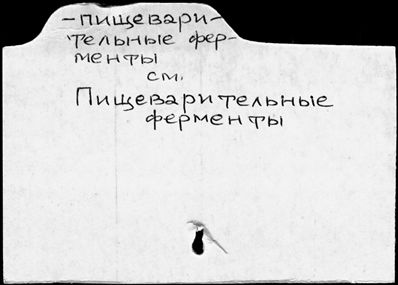 -пищевари-
тельные фер-
менты
см.
Пищеварительные
ферменты